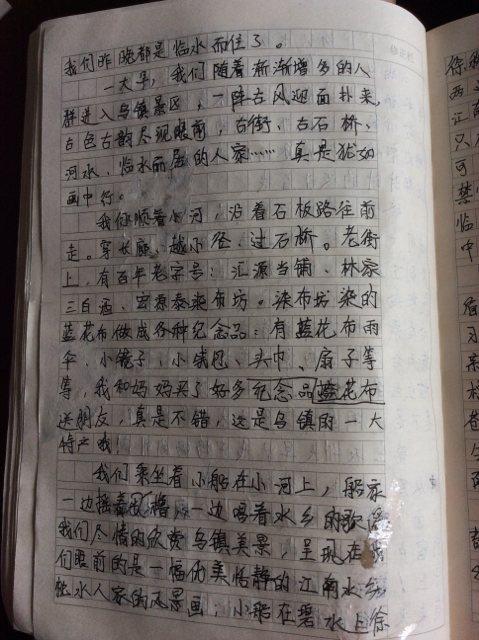 我们昨晚都是临水而住了。
一大早，我们随着渐渐增多的人
群进入乌镇景区，一阵古风迎面扑来，
古色古韵尽现眼前，古街、古石桥、
河水、临水而居的人家……真是犹如
画中行。
我们顺着小河，沿着石板路往前
走。穿长廊、越小径、过石桥。老街
上，有百年老字号：汇源当铺、林家
三白酒、宏源泰染布坊。染布坊染的
蓝花布做成各种纪念品：有蓝花布雨
伞、小镜子、小钱包、头巾、扇子等
等，我和妈妈买了好多纪念品蓝花布
送朋友，真是不错，这是乌镇的一大
特产哦！
我们乘坐着小船在小河上，船家
一边摇着橹一边唱着水乡的歌
我们尽情的欣赏乌镇美景，呈现在我
们眼前的是一幅优美恬静的江南水乡
水人家的风景画，小船在碧水上徐
待
西
证
只
可
禁
临
中